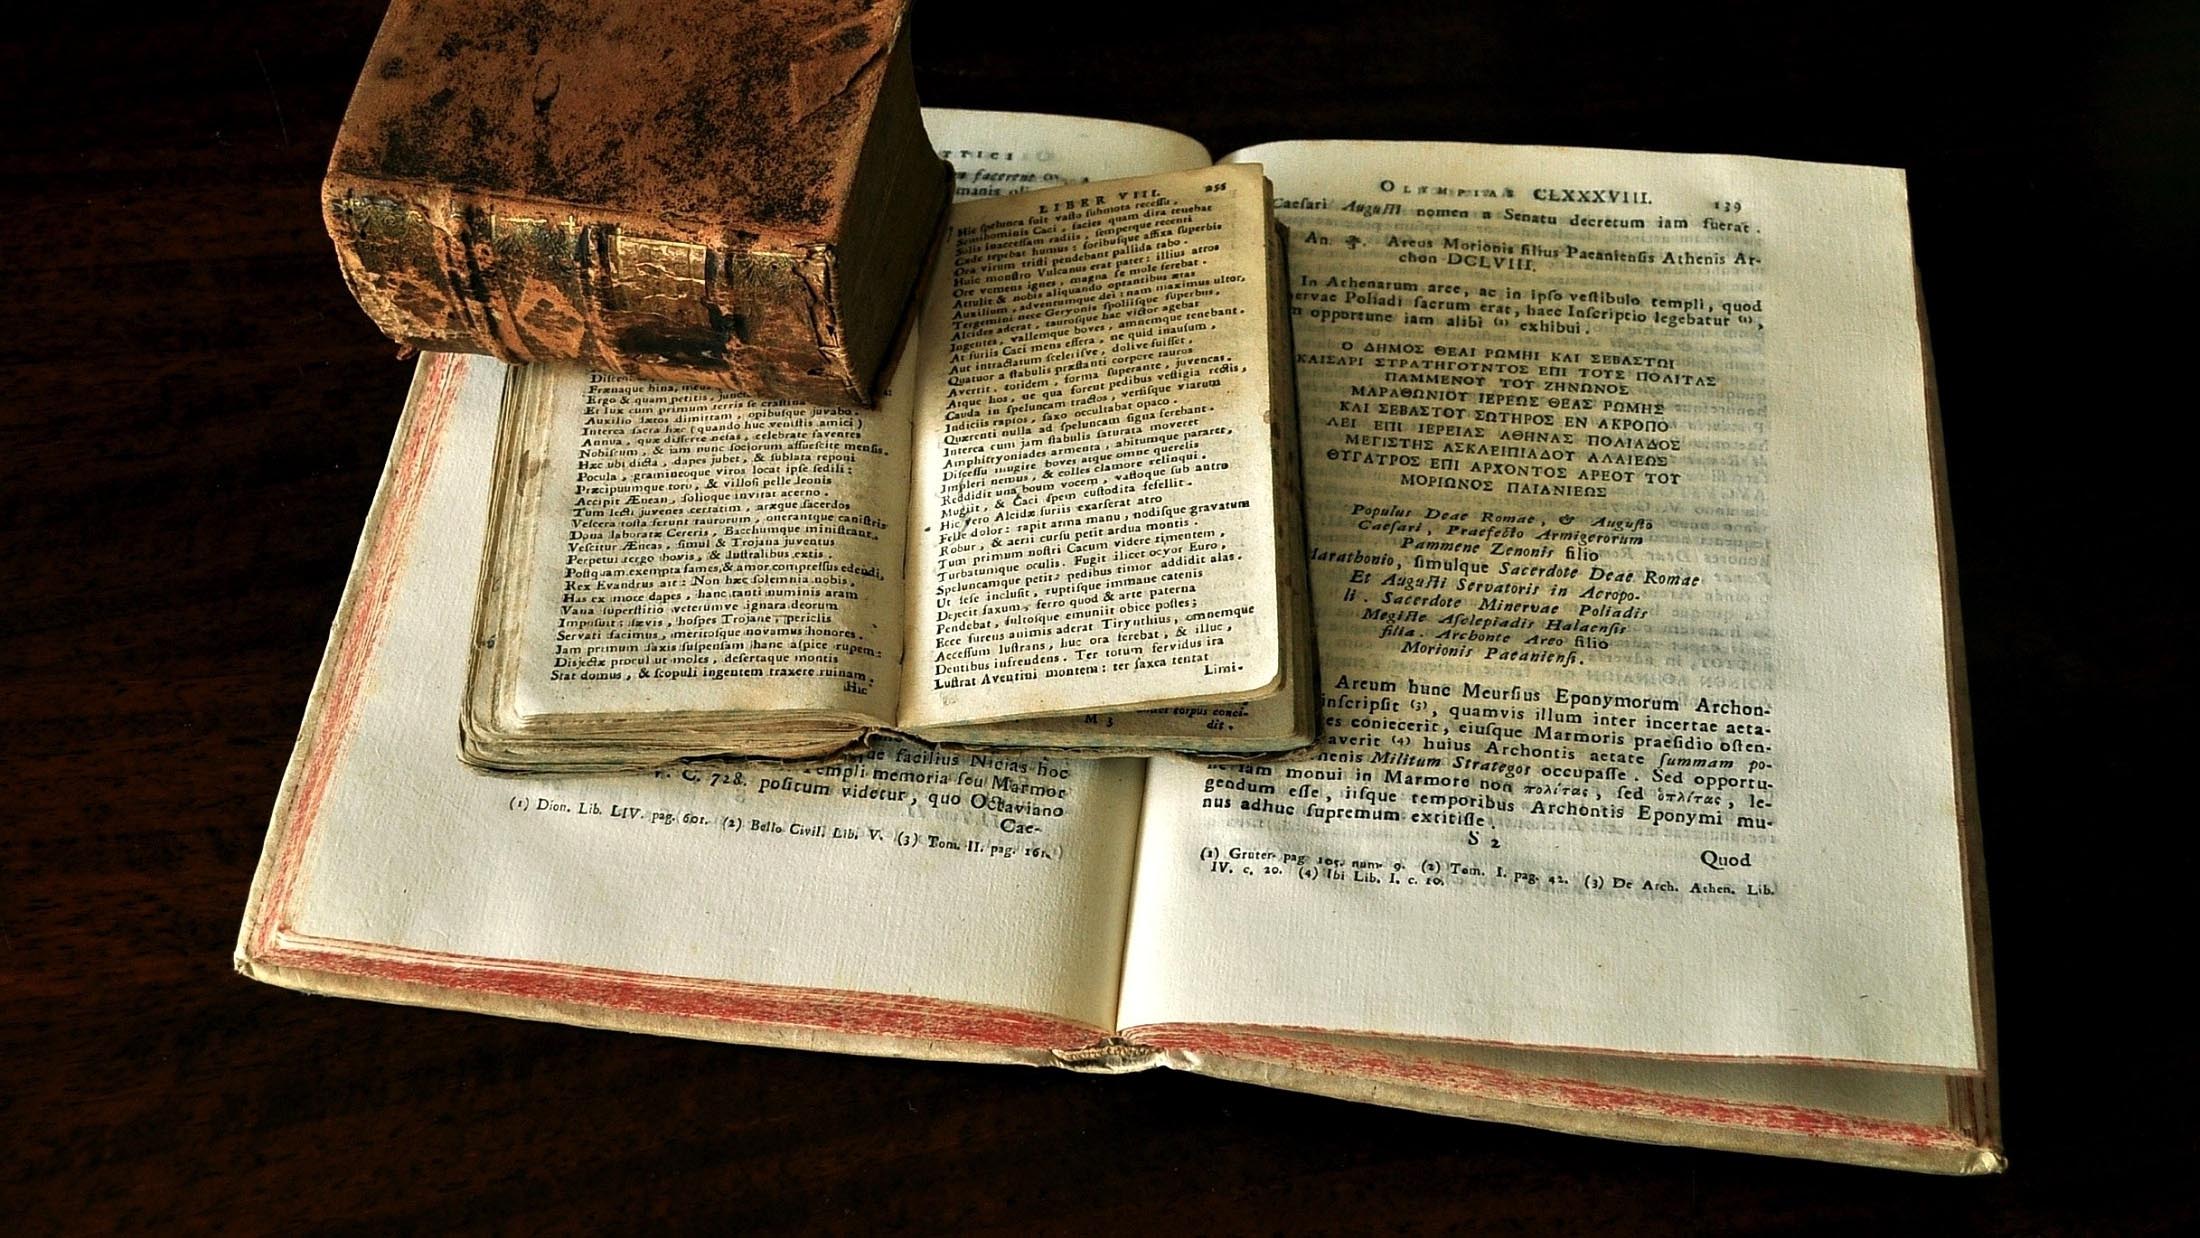 TTICI
facerent (1)
LIBER VIII. 255
Hic spelunca fuit vasto submota recessu,
Semihominis Caci, facies quam dira tenebat
Solis inaccessam radiis, semperque recenti
Cæde tepebat humus: foribusque affixa superbis
Ora virum tristi pendebant pallida tabo.
Huic monstro Vulcanus erat pater: illius atros
Ore vomens ignes, magna se mole ferebat.
Attulit & nobis aliquando optantibus ætas
Auxilium, adventumque dei: nam maximus ultor,
Tergemini nece Geryonis spoliisque superbus,
Alcides aderat, taurosque hac victor agebat
Ingentes, vallemque boves, amnemque tenebant.
At furiis Caci mens effera, ne quid inausum,
Aut intractum scelerisve, dolive fuisset,
Quatuor a stabulis præstanti corpore tauros
Avertit, totidem, forma superante, juvencas.
Atque hos, ne qua forent pedibus vestigia rectis,
Cauda in speluncam tractos, versisque viarum
Indiciis raptos, saxo occultabat opaco.
Quærenti nulla ad speluncam signa ferebant.
Interea cum jam stabulis saturata moveret
Amphitryoniades armenta, abitumque pararet,
Discessu mugire boves atque omne querelis
Impleri nemus, & colles clamore relinqui.
Reddidit una boum vocem, vastoque sub antro
Mugiit, & Caci spem custodita fefellit.
Hic vero Alcidæ furiis exarserat atro
Felle dolor: rapit arma manu, nodisque gravatum
Robur, & aerii cursu petit ardua montis.
Tum primum nostri Cacum videre timentem,
Turbatumque oculis. Fugit ilicet ocyor Euro,
Speluncamque petit: pedibus timor addidit alas.
Ut sese inclusit, ruptisque immane catenis
Dejecit saxum, ferro quod & arte paterna
Pendebat, fultosque emuniit obice postes;
Ecce furens animis aderat Tirynthius, omnemque
Accessum lustrans, huc ora ferebat, & illuc,
Dentibus infrendens. Ter totum fervidus ira
Lustrat Aventini montem: ter saxea tentat
Limi-
Frænaque bina, meus
Ergo & quam petitis, junct
Et lux cum primum terris se crastina
Auxilio lætos dimittam, opibusque juvabo.
Interea sacra hæc (quando huc venistis amici)
Annua, quæ differre nefas, celebrate faventes
Nobiscum, & jam nunc sociorum assuescite mensis.
Hæc ubi dicta, dapes jubet, & sublata reponi
Pocula, gramineoque viros locat ipse sedili:
Præcipuumque toro, & villosi pelle leonis
Accipit Ænean, solioque invitat acerno.
Tum lecti juvenes certatim, aræque sacerdos
Viscera tosta ferunt taurorum, onerantque canistris
Dona laboratæ Cereris, Bacchumque ministrant.
Vescitur Æneas, simul & Trojana juventus
Perpetui tergo bovis, & lustralibus extis.
Postquam exempta fames, & amor compressus edendi,
Rex Evandrus ait: Non hæc solemnia nobis,
Has ex more dapes, hanc tanti numinis aram
Vana superstitio veterumve ignara deorum
Imposuit: sævis, hospes Trojane, periclis
Servati facimus, meritosque novamus honores.
Jam primum saxis suspensam hanc aspice rupem:
Disjectæ procul ut moles, desertaque montis
Stat domus, & scopuli ingentem traxere ruinam.
Hic
M 3
dit.
ue facilius Nicias hoc
Templi memoria seu Marmor
V. C. 728. positum videtur, quo Octaviano
Cae-
(1) Dion. Lib. LIV. pag. 601. (2) Bello Civil. Lib. V. (3) Tom. II. pag. 161.
OLYMPIAS CLXXXVIII. 139
Caesari Augusti nomen a Senatu decretum iam fuerat.
An. Areus Morionis filius Paeaniensis Athenis Ar-
chon DCLVIII.
In Athenarum arce, ac in ipso vestibulo templi, quod
ervae Poliadi sacrum erat, haec Inscriptio legebatur (1),
m opportune iam alibi (2) exhibui.
Ο ΔΗΜΟΣ ΘΕΑΙ ΡΩΜΗΙ ΚΑΙ ΣΕΒΑΣΤΩΙ
ΚΑΙΣΑΡΙ ΣΤΡΑΤΗΓΟΥΝΤΟΣ ΕΠΙ ΤΟΥΣ ΠΟΛΙΤΑΣ
ΠΑΜΜΕΝΟΥ ΤΟΥ ΖΗΝΩΝΟΣ
ΜΑΡΑΘΩΝΙΟΥ ΙΕΡΕΩΣ ΘΕΑΣ ΡΩΜΗΣ
ΚΑΙ ΣΕΒΑΣΤΟΥ ΣΩΤΗΡΟΣ ΕΝ ΑΚΡΟΠΟ
ΛΕΙ ΕΠΙ ΙΕΡΕΙΑΣ ΑΘΗΝΑΣ ΠΟΛΙΑΔΟΣ
ΜΕΓΙΣΤΗΣ ΑΣΚΛΕΙΠΙΑΔΟΥ ΑΛΑΙΕΩΣ
ΘΥΓΑΤΡΟΣ ΕΠΙ ΑΡΧΟΝΤΟΣ ΑΡΕΟΥ ΤΟΥ
ΜΩΡΙΩΝΟΣ ΠΑΙΑΝΙΕΩΣ
Populus Deae Romae, & Augusto
Caesari, Praefecto Armigerorum
Pammene Zenonis filio
Marathonio, simulque Sacerdote Deae Romae
Et Augusti Servatoris in Acropo-
li. Sacerdote Minervae Poliadis
Megiste Asclepiadis Halaensis
filia. Archonte Areo filio
Morionis Paeaniensi.
Areum hunc Meursius Eponymorum Archon-
inscripsit (3), quamvis illum inter incertae aeta-
es coniecerit, eiusque Marmoris praesidio osten-
averit (4) huius Archontis aetate summam po-
henis Militum Strategos occupasse. Sed opportu-
ne iam monui in Marmore non πολίτας, sed ὁπλίτας, le-
gendum esse, iisque temporibus Archontis Eponymi mu-
nus adhuc supremum extitisse.
S 2
Quod
(1) Gruter. pag. 105. num. 9. (2) Tom. I. pag. 42. (3) De Arch. Athen. Lib.
IV. c. 20. (4) Ibi Lib. I. c. 10.